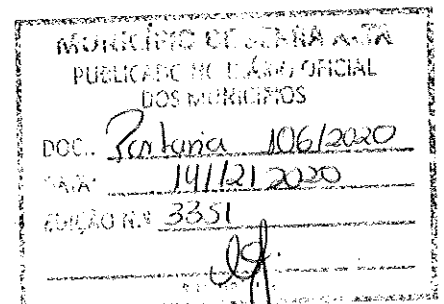 MUNICÍPIO DE SERRA ALTA
PUBLICADO NO DIÁRIO OFICIAL
DOS MUNICÍPIOS
DOC.. Portaria 106/2020
DATA: 14/12/2020
EDIÇÃO N.º 3351